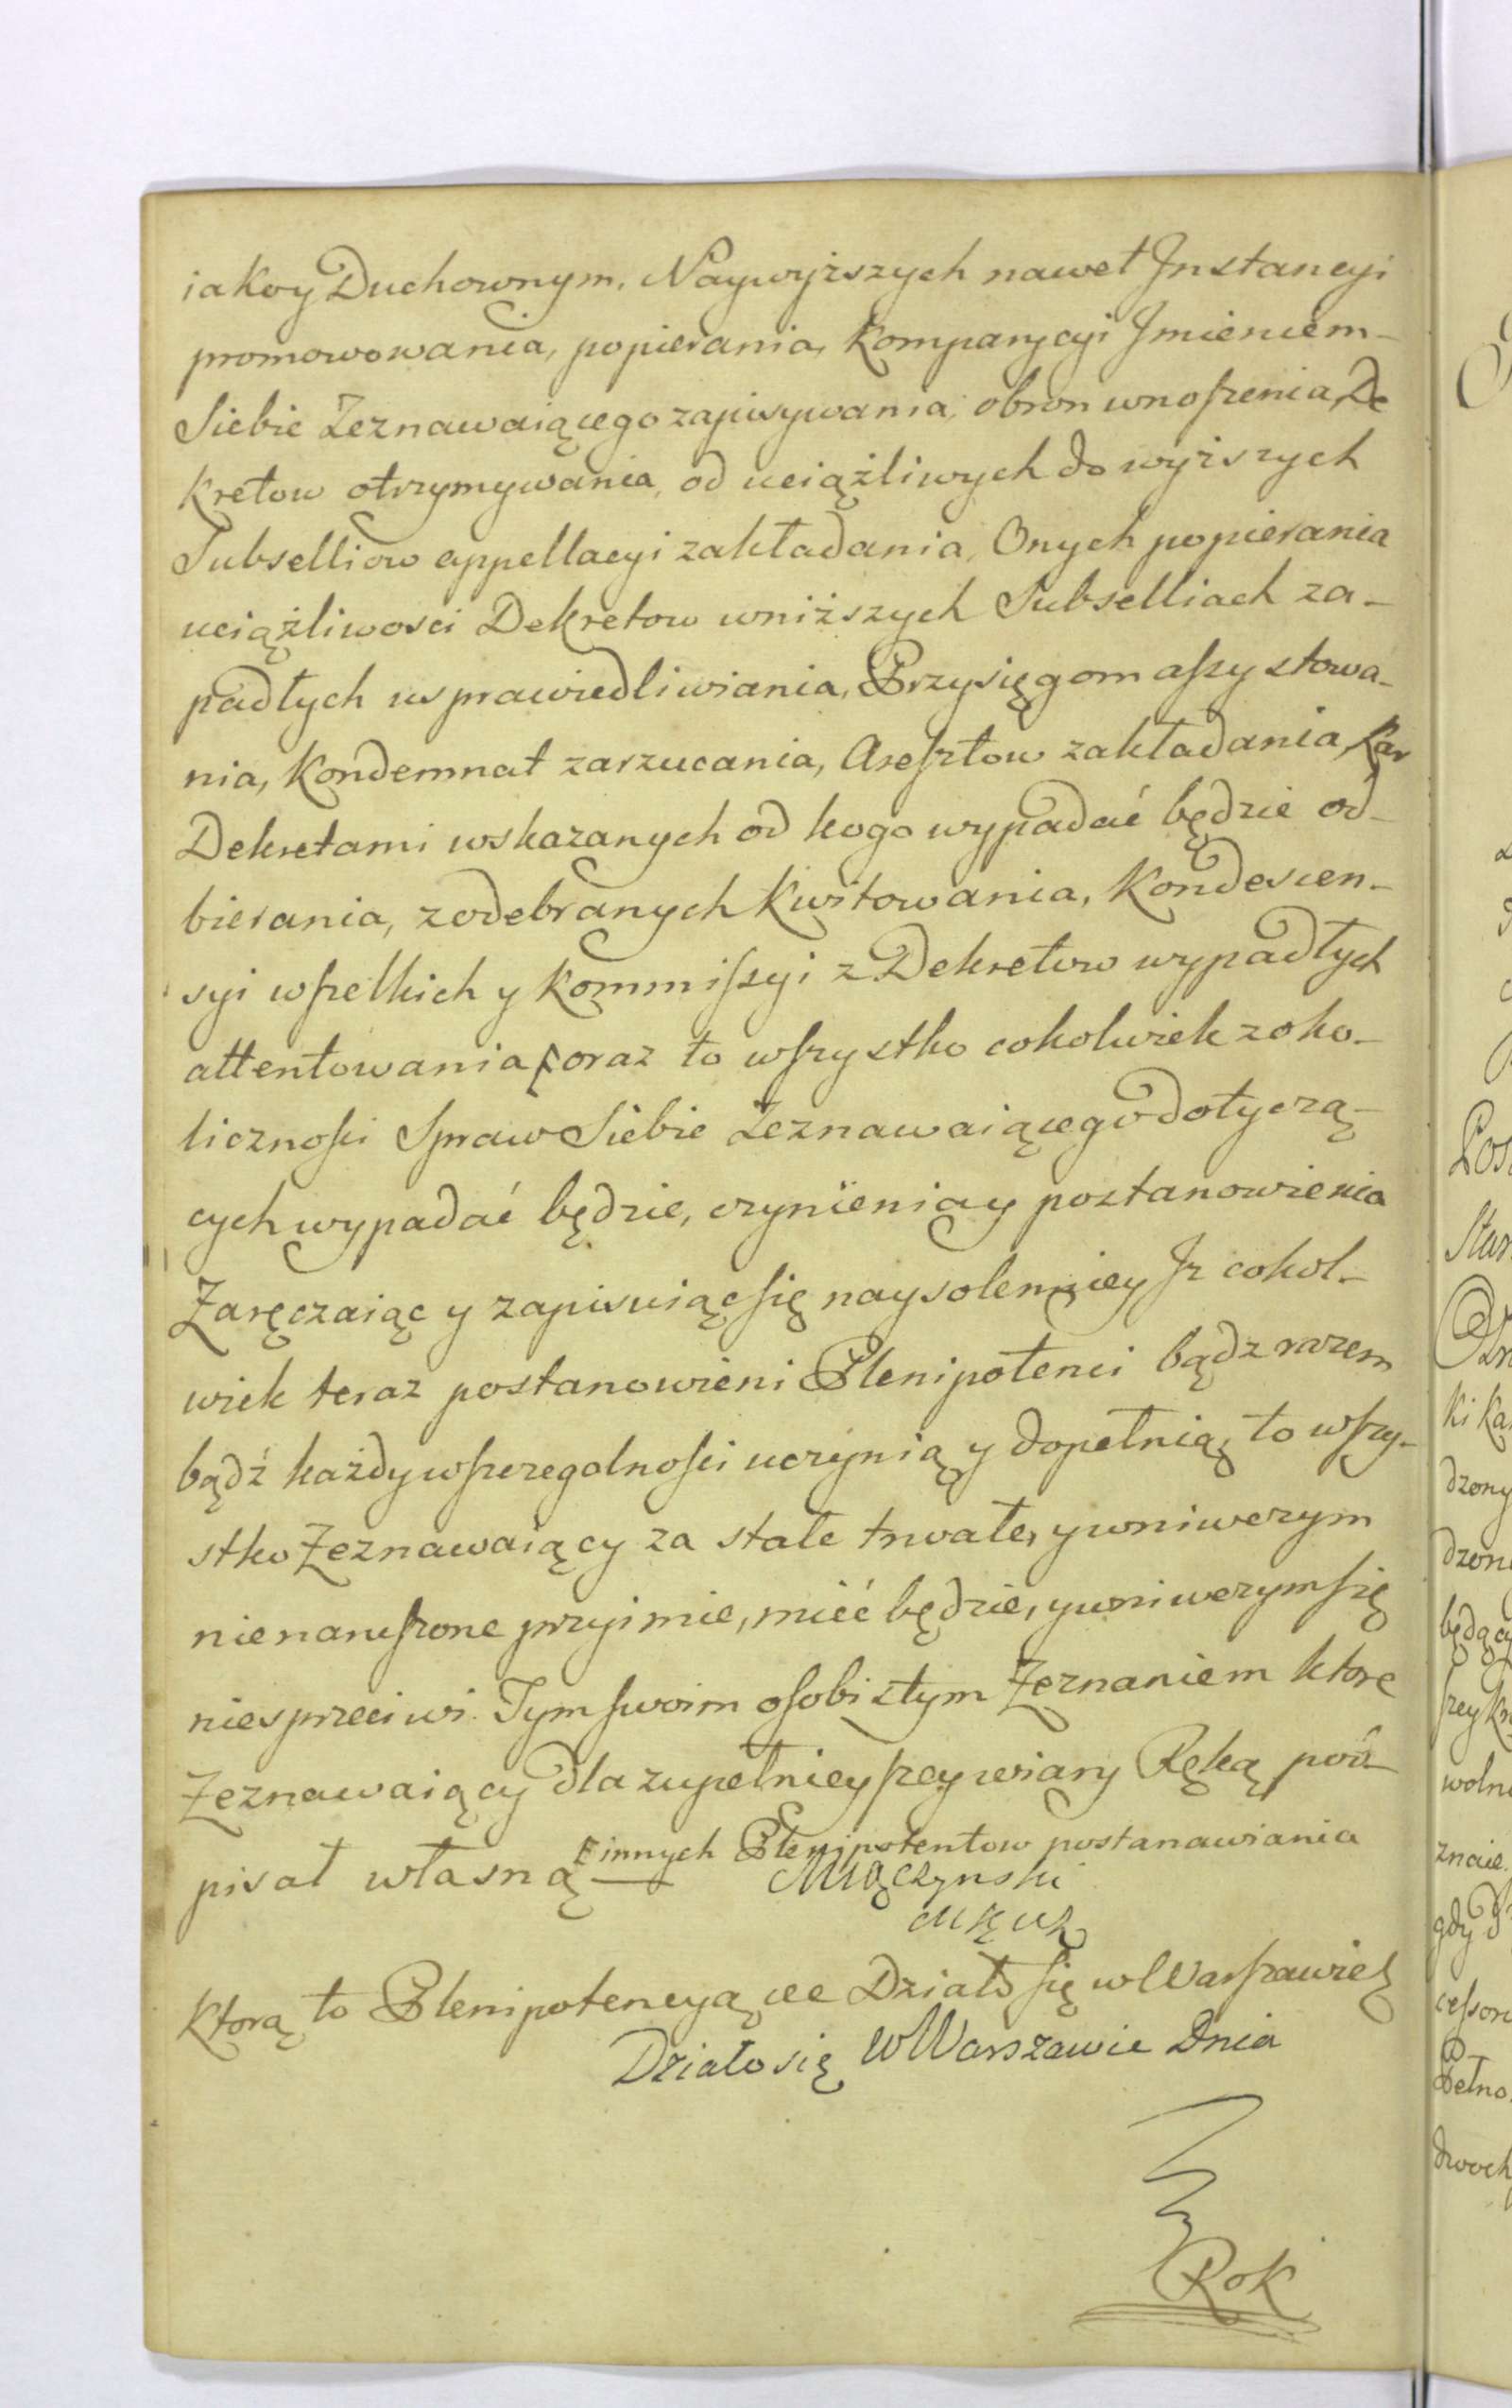 iako y Duchownym, Naywyższych nawet Jnstancyi
promowowania, popierania, Komparycyi Jmieniem
Siebie Zeznawaiącego zapisywania, obron wnoszenia, De
kretow otrzymywania, od uciążliwych do wyższych
Subselliow appellacyi zakładania, Onych popierania
uciążliwosci Dekretow w niższych Subselliach za-
padłych usprawiedliwiania, Przysięgom assystowa-
nia, Kondemnat zarzucania, Aresztow zakładania, Kar
Dekretami wskazanych od kogo wypadać będzie od-
bierania, z odebranych Kwitowania, Kondescen-
syi wszelkich y Kommissyi z Dekretow wypadłych
attentowania, oraz to wszystko cokolwiek z oko-
licznosci Spraw Siebie Zeznawaiącego dotyczą-
cych wypadać będzie, czynienia y postanowienia
Zaręczaiąc y zapisuiąc się naysolenniey Jż cokol-
wiek teraz postanowieni Plenipotenci bądz razem
bądź każdy w szczegolnosci uczynią y dopełnią, to wszy-
stko Zeznawaiący za stałe trwałe, y w niwczym
nienaruszone przyimie, mieć będzie, y w niwczym się
niesprzeciwi. Tym swoim osobistym Zeznaniem ktore
Zeznawaiący dla zupełnieyszey wiary Ręką pod-
pisał własną innych Plenipotentow postanawiania
Miączynski
Ktorą to Plenipotencyą Działo się w Warszawie
Działo się W Warszawie Dnia
Rok